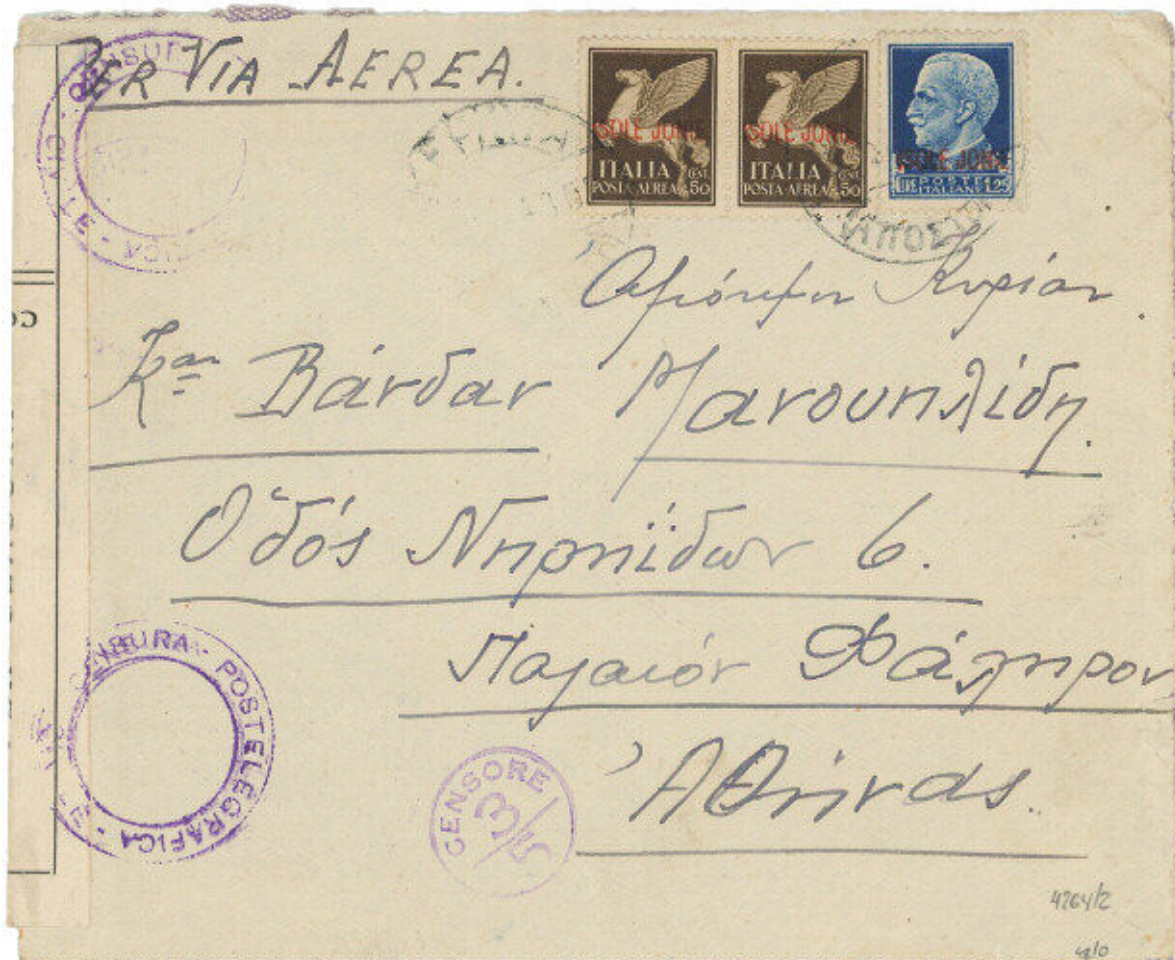 PER VIA AEREA.
ISOLE JONIE
ITALIA
CENT.
POSTA AEREA 50
ISOLE JONIE
ITALIA
CENT.
POSTA AEREA 50
ISOLE JONIE
LIRE POSTE ITALIANE 1,25
Ἀξιότιμον Κυρίαν
Καν Βάνδαν Μανουηλίδη.
Ὁδός Νηρηΐδων 6.
Παλαιόν Φάληρον
Ἀθήνας.
CENSURA POSTELEGRAFICA
CENSORE
3/5
4264/2